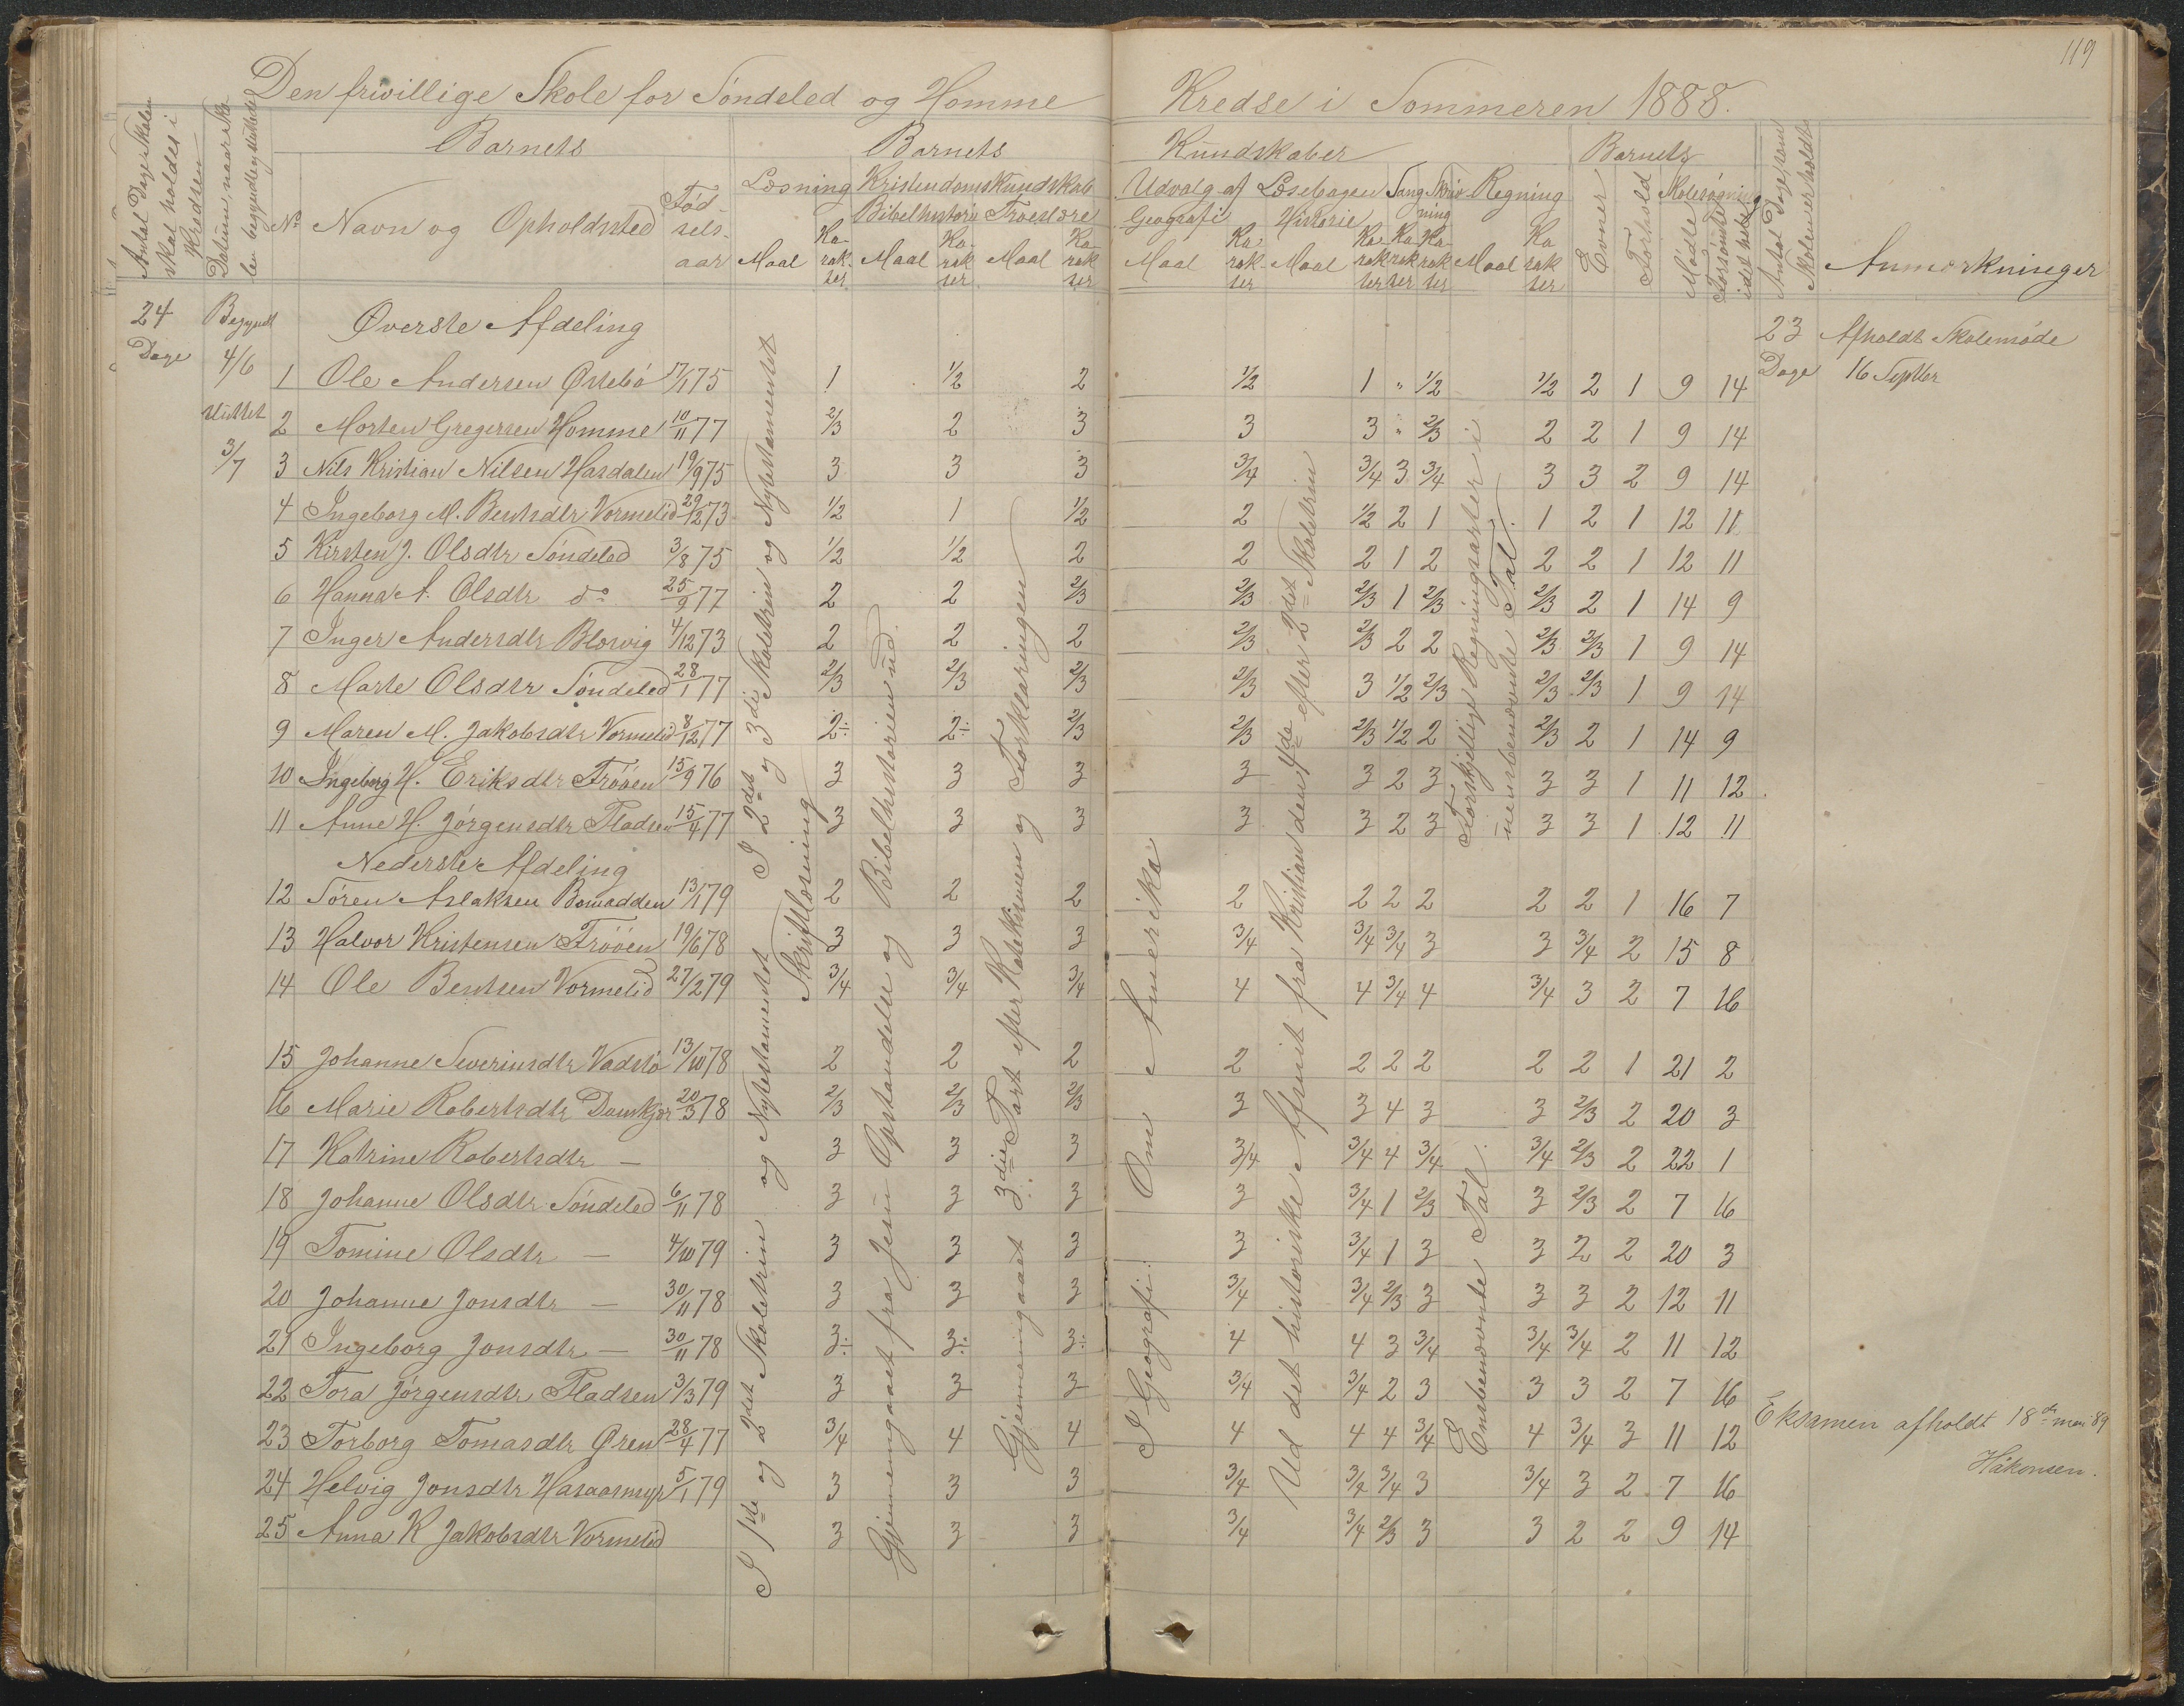 119
Den frivillige Skole for Söndeled og Homme Kredse i Sommeren 1888.
Antal Dage Skolen skal holdes i Kredsen
Datum, naar Skolen begynder og slutter
Barnets
Barnets Kundskaber
Barnets
No Navn og Opholdssted Födselsaar
Læsning Kristendomskundskab Udvalg af Læsebogen Sang Skrivning Regning
Bibelhistorie Troeslære Geografi Historie
Maal Karakter Maal Karakter Maal Karakter Maal Karakter Maal Karakter Karakter Karakter Maal Karakter
Evner Forhold Skolesøgning Mødte Forsømte i det hele
Antal Dage, som Skolen er holdt
Anmærkninger
24 Dage
Begyndt 4/6
sluttet 3/7
Øverste Afdeling
1 Ole Andersen Østebö 17/1 75 1 1/2 2 1/2 1 " 1/2 1/2 2 1 9 14
2 Morten Gregersen Homme 10/11 77 2/3 2 3 3 3 " 2/3 2 2 1 9 14
3 Nils Kristian Nilsen Hasdalen 19/9 75 3 3 3 3/4 3/4 3 3/4 3 3 2 9 14
4 Ingeborg M. Bentsdtr Vormelid 29/12 73 1/2 1 1/2 2 1/2 2 1 1 2 1 12 11
5 Kirsten J. Olsdtr Söndeled 3/8 75 1/2 1/2 2 2 2 1 2 2 2 1 12 11
6 Hanna A. Olsdtr do 25/9 77 2 2 2/3 2/3 2/3 1 2/3 2/3 2 1 14 9
7 Inger Andersdtr Blosvig 4/12 73 2 2 2 2/3 2/3 2 2 2/3 2/3 1 9 14
8 Marte Olsdtr Söndeled 28/1 77 2/3 2/3 2/3 2/3 3 1/2 2/3 2/3 2/3 1 9 14
9 Maren M. Jakobsdtr Vormelid 8/12 77 2÷ 2÷ 2/3 2/3 2/3 1/2 2 2/3 2 1 14 9
10 Ingeborg H. Eriksdtr Tröoen 15/9 76 3 3 3 3 3 2 3 3 3 1 11 12
11 Anne H. Jörgensdtr Fladsen 15/4 77 3 3 3 3 3 2 3 3 3 1 12 11
Nederste Afdeling
12 Sören Aslaksen Bomadden 13/1 79 2 2 2 2 2 2 2 2 2 1 16 7
13 Halvor Kristensen Tröoen 19/6 78 3 3 3 3/4 3/4 3/4 3 3 3/4 2 15 8
14 Ole Bentsen Vormelid 27/2 79 3/4 3/4 3/4 4 4 3/4 4 3/4 3 2 7 16
15 Johanne Severinsdtr Vadstö 13/10 78 2 2 2 2 2 2 2 2 2 1 21 2
16 Marie Robertsdtr Damkjær 20/3 78 2/3 2/3 2/3 3 3 4 3 3 2/3 2 20 3
17 Katrine Robertsdtr — 3 3 3 3/4 3/4 4 3/4 3/4 2/3 2 22 1
18 Johanne Olsdtr Söndeled 6/11 78 3 3 3 3 3/4 1 2/3 3 2/3 2 7 16
19 Tomine Olsdtr — 4/10 79 3 3 3 3 3/4 1 3 3 2 2 20 3
20 Johanne Jonsdtr — 30/11 78 3 3 3 3/4 3/4 2/3 3 3 3 2 12 11
21 Ingeborg Jonsdtr — 30/11 78 3÷ 3÷ 3÷ 4 4 3 3/4 3/4 3/4 2 11 12
22 Tora Jörgensdtr Fladsen 3/3 79 3 3 3 3/4 3/4 2 3 3 3 2 7 16
23 Torborg Tomasdtr Øren 28/4 77 3/4 4 4 4 4 4 3/4 4 3/4 3 11 12
24 Helvig Jonsdtr Hasaasmyr 5/1 79 3 3 3 3/4 3/4 3/4 3 3/4 3 2 7 16
25 Anna K Jakobsdtr Vormelid 3 3 3 3/4 3/4 2/3 3 3 2 2 9 14
I 2det og 3die Skoletrin og Nytestamentet
Skriftlæsning
I 1ste og 2det Skoletrin og Nytestamentet
Gjennemgaaet fra Jesu Opstandelse og Bibelhistorien ud.
Gjennemgaaet 3die Part efter Katekismen og Forklaringen
I Geografi: Om Amerika
Ud det historiske Afsnit fra Kristian den 4de efter 2det Skoletrin
Forskjellige Regningsarter i uensbenævnte Tal.
Ensbenævnte Tal.
23 Dage
Afholdt Skolemøde
16 Septbr
Eksamen afholdt 18de mai 89
Håkonsen.